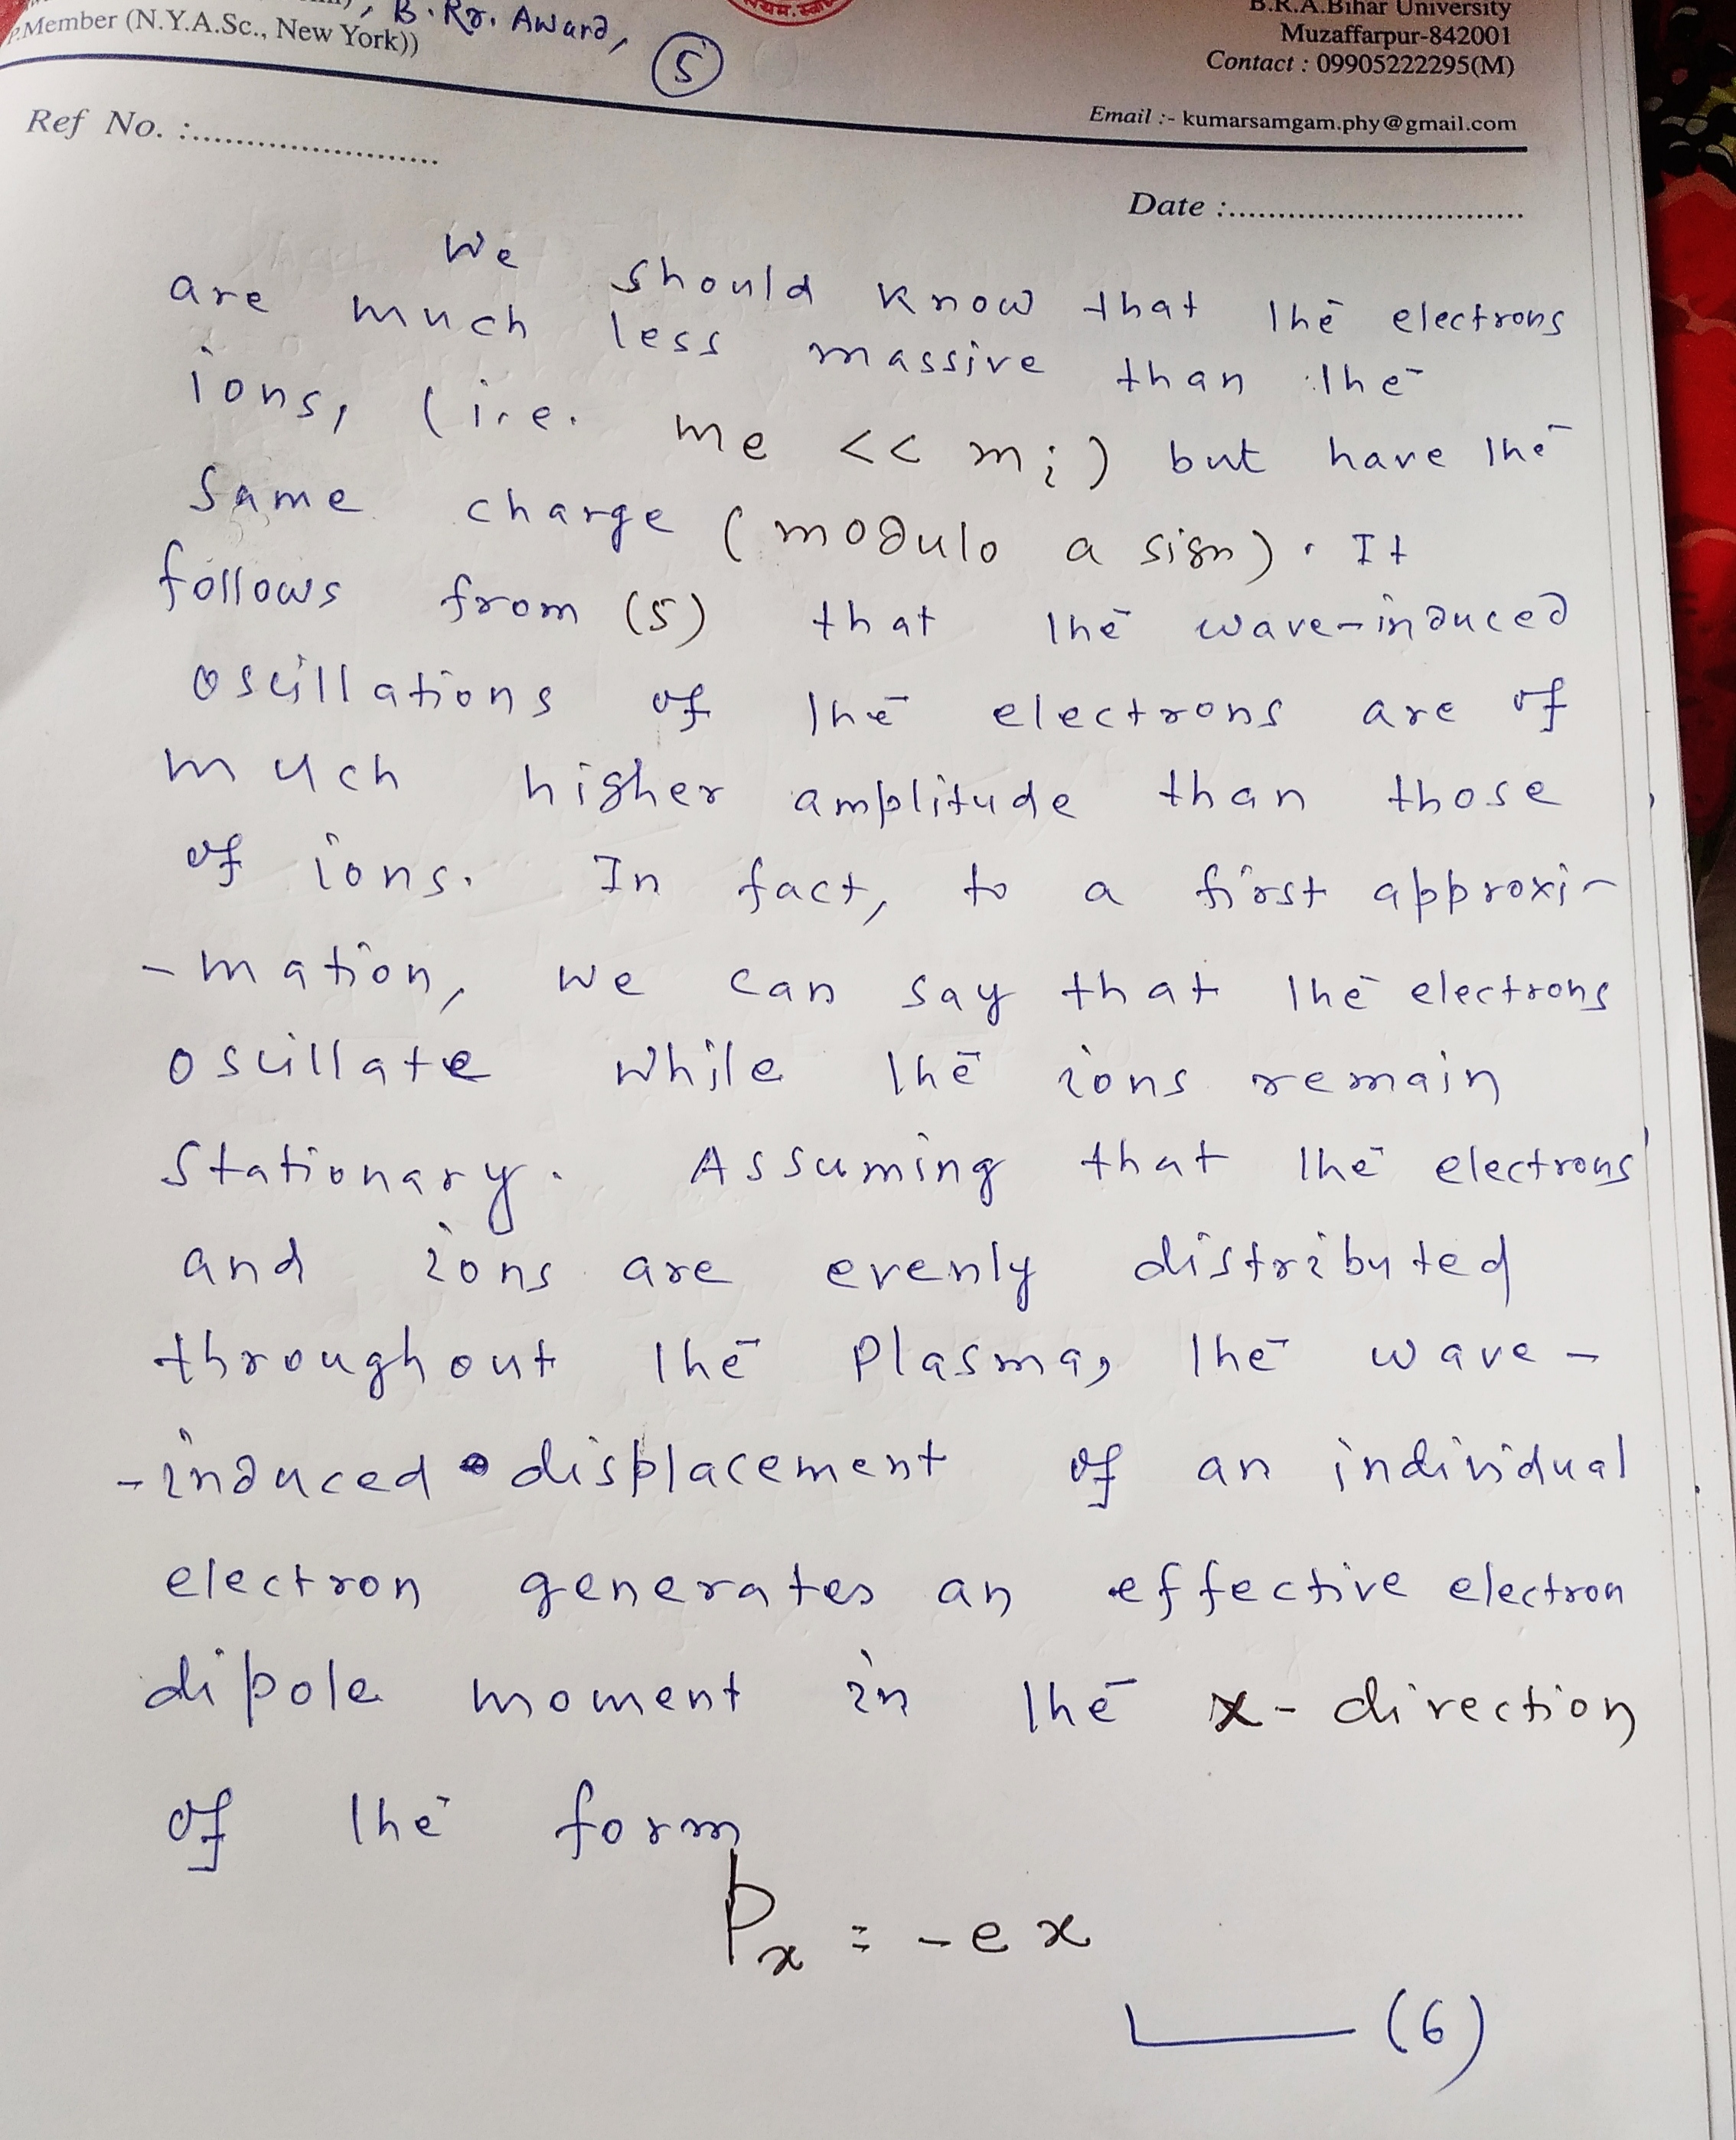 B. Rr. Award,
P.Member (N.Y.A.Sc., New York))
5
B.R.A.Bihar University
Muzaffarpur-842001
Contact : 09905222295(M)
Email :- kumarsamgam.phy@gmail.com
Ref No. :........................
Date :................................
We should know that the electrons
are much less massive than the
ions, (i.e. me << mi) but have the
same charge (modulo a sign). It
follows from (5) that the wave-induced
oscillations of the electrons are of
much higher amplitude than those
of ions. In fact, to a first approxi-
-mation, we can say that the electrons
oscillate while the ions remain
stationary. Assuming that the electrons
and ions are evenly distributed
throughout the plasma, the wave-
-induced displacement of an individual
electron generates an effective electron
dipole moment in the x-direction
of the form
Px = -ex
(6)